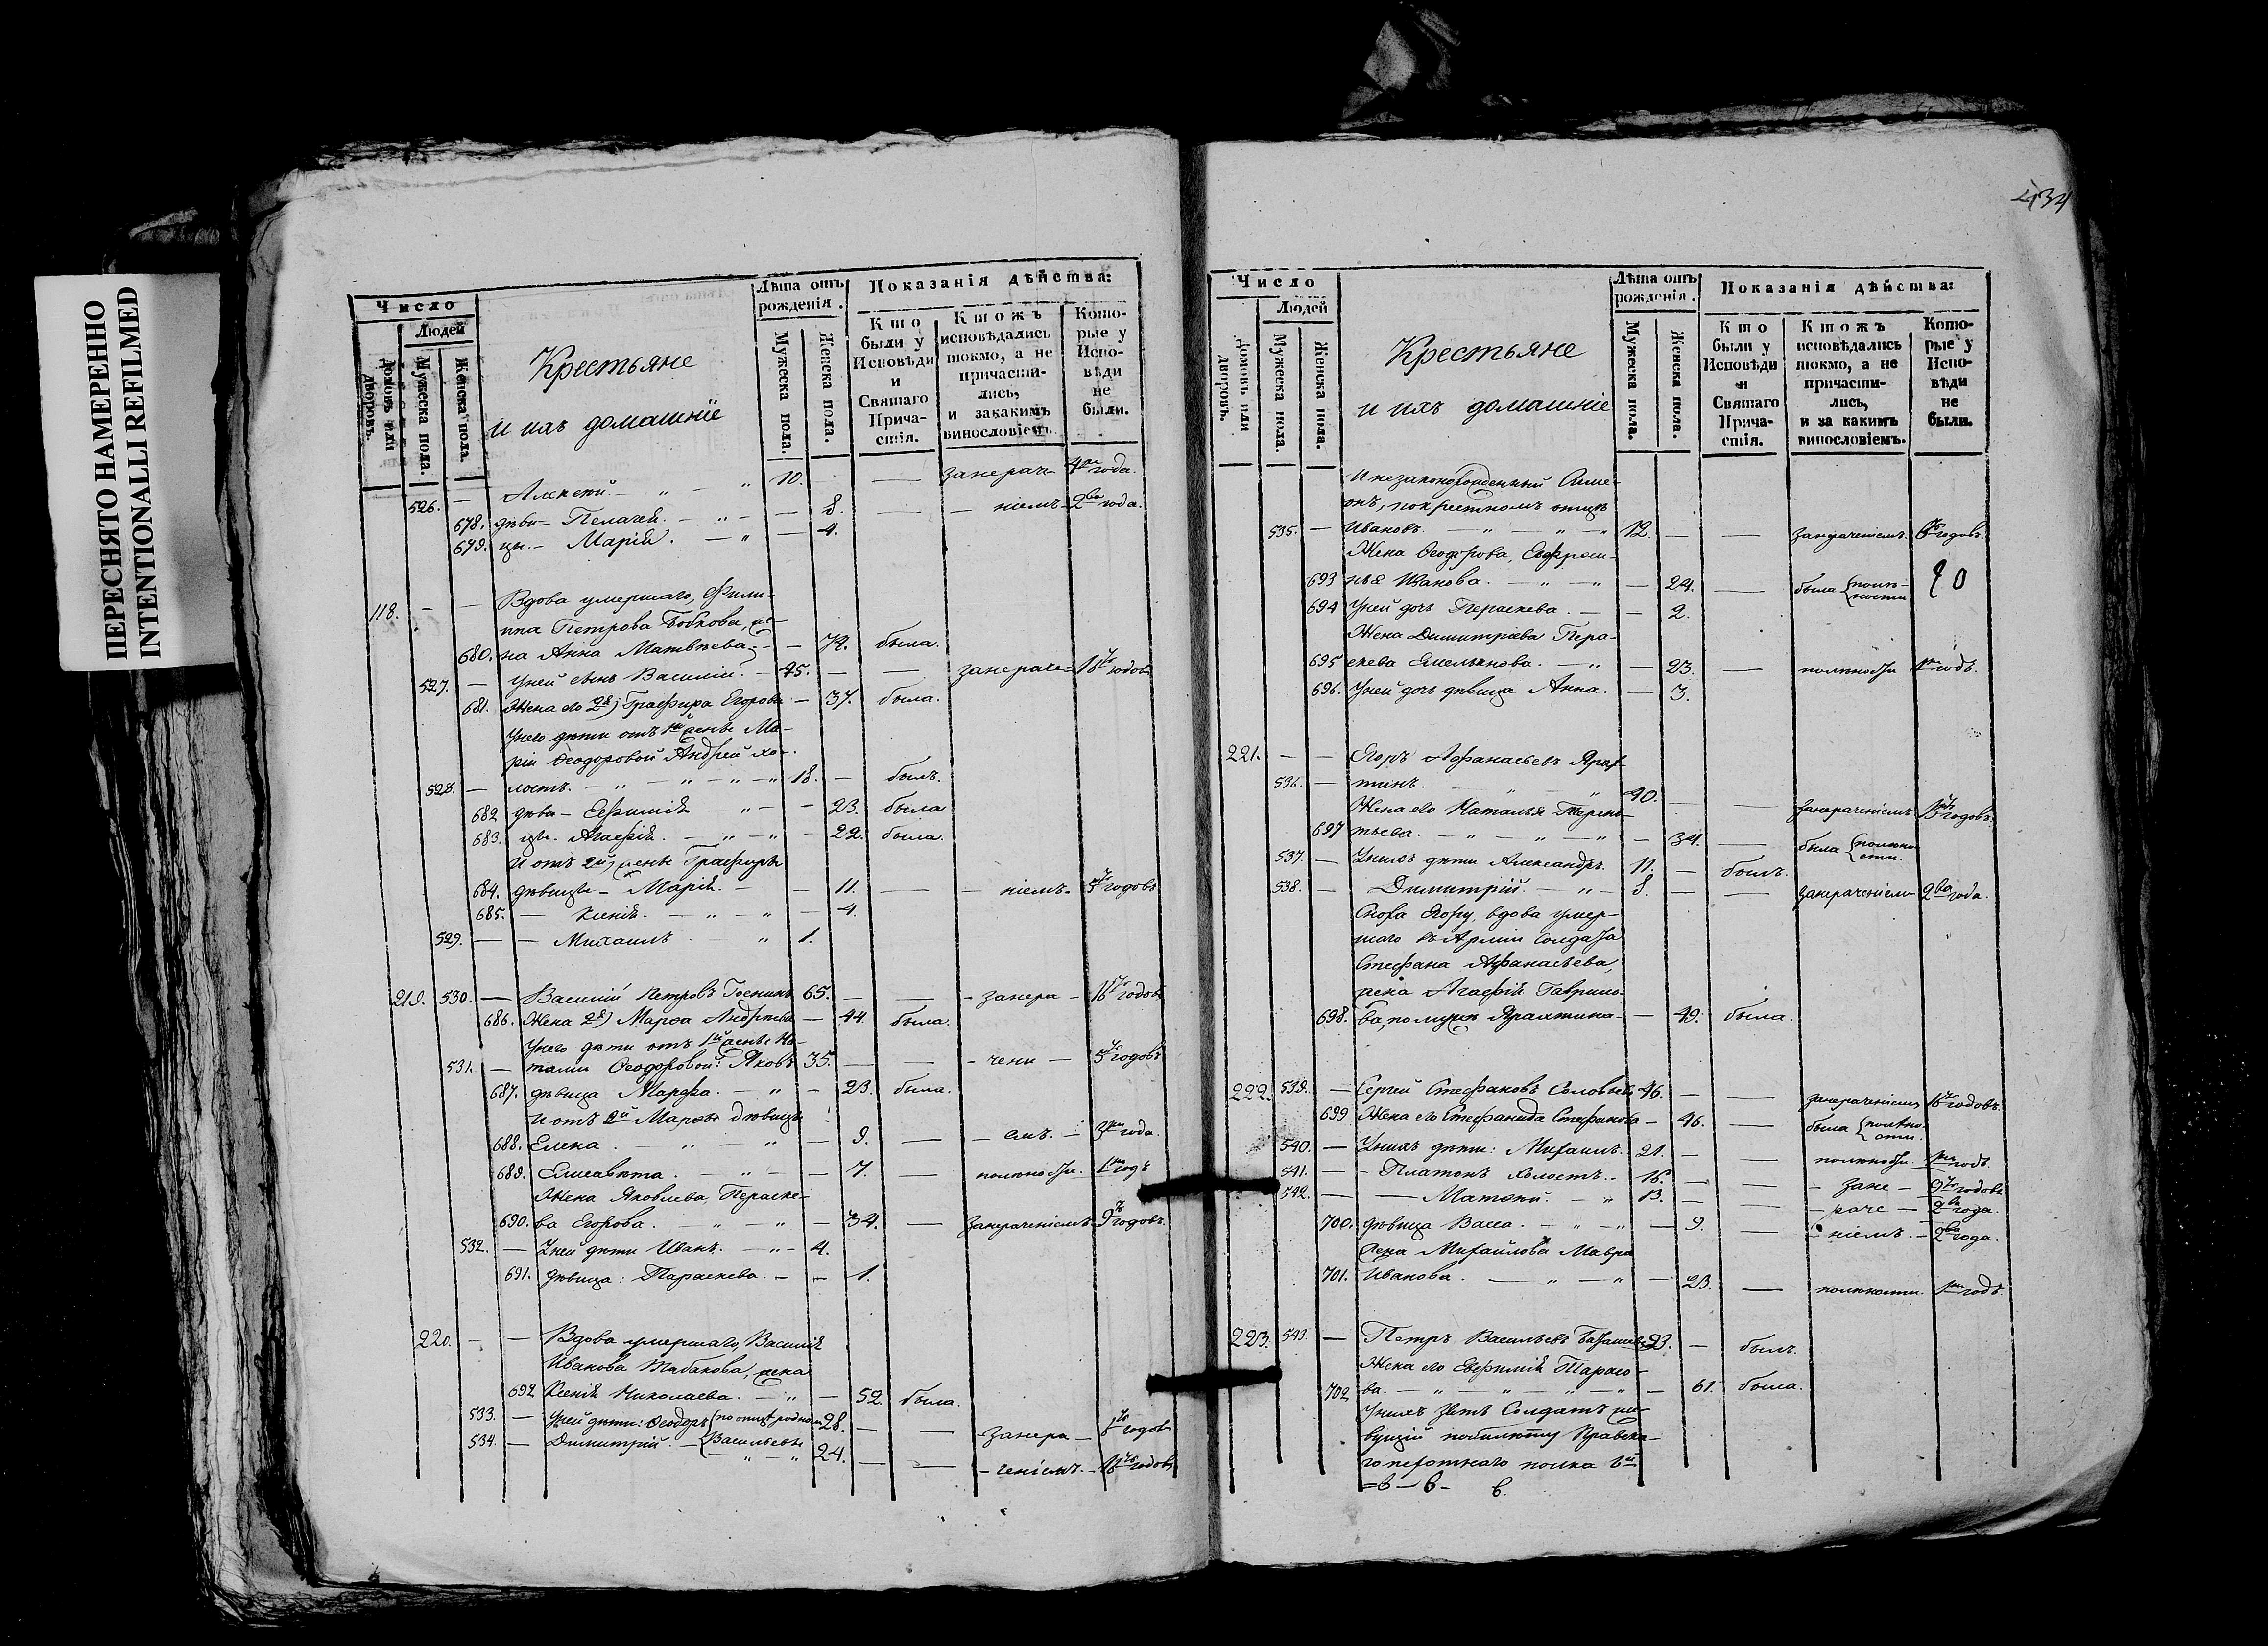 ПЕРЕСНЯТО НАМЕРЕННО
INTENTIONALLI REFILMED
434
Число
Людей
домовъ или дворовъ.
Мужеска пола.
Женска пола.
Крестьяне
и ихъ домашніе
Лѣта отъ рожденія.
Мужеска пола.
Женска пола.
Показанія дѣйства:
Кто были у Исповѣди и Святаго Причастія.
Ктожъ исповѣдались токмо, а не причастились, и закакимъ винословіемъ.
Которые у Исповѣди не были.
526. — Алексѣй. — „ — „ 10. — занераче- 4ре года.
678. дѣви= Пелагея. — „ — — 8. — — ніемъ- 2ва года.
679. цы. — Марія. — „ — 4.
118. — — Вдова умершаго, Фили-
ппа Петрова Бобкова, же-
680. на Анна Матвѣева — — 72. была.
527. — Уней сынъ Василій. — 45. — — занераче= 16ть годовъ
681. Жена его 2я) Глафира Егорова — 37. была.
Унего дѣти отъ 1й жены Ма-
ріи Ѳеодоровой Андрей хо-
528. — лостъ. — „ — „ — „ — „ 18. — былъ.
682 дѣви- Евфимія — „ — — 23. была
683. цы. Агафія. — „ — „ — 22. была.
И отъ 2й жены Глафиры
684. дѣвицы — Марія. — — 11. — — ніемъ. 5ть годовъ
685. — Ксенія. — „ — „ — 4.
529. — — Михаилъ. — „ 1.
219. 530. — Василій Петровъ 65. — — - занера - 16ть годовъ
686. Жена 2я) Марѳа Андреева — 44. была.
Унего дѣти отъ 1й жены На-
531. — таліи Ѳеодоровой: Яковъ 35. — — - чені — 5ть годовъ
687. дѣвица Марѳа. — „ — 23. была.
И отъ 2й Марѳы дѣвицы
688. Елена. — „ — „ — 9. — — емъ. — 3ри года.
689. Елисавета. — „ — — 7. — полѣности. 1нъ годъ
Жена Яковлева, Пераске-
690. ва Егорова. — „ — „ — 34. — занераченіемъ 9ть годовъ.
532. — Уней дѣти Иванъ. — „ - 4.
691. дѣвица: Параскева. — — 1.
220. — — Вдова умершаго, Василія
Иванова Табакова, жена
692 Ксенія Николаева. — „ — 52. была.
533. — Уней дѣти: Ѳеодоръ (по отцѣ родномъ 28. — — - занера — годовъ
534. — Димитрій. — Васильевы „ — „ 24. — — - ченіемъ. - 16ть годовъ
Число
Людей
домовъ или дворовъ.
Мужеска пола.
Женска пола.
Крестьяне
и ихъ домашніе
Лѣта отъ рожденія.
Мужеска пола.
Женска пола.
Показанія дѣйства:
Кто были у Исповѣди и Святаго Причастія.
Ктожъ исповѣдались токмо, а не причастились, и за какимъ винословіемъ.
Которые у Исповѣди не были.
И незаконорожденный Симе-
онъ, покрестномъ отцѣ
535. — Ивановъ. — „ — „ — „ 12. — — занераченіемъ. 6ть годовъ
Жена Ѳеодорова, Евфроси-
693 нья Иванова. — „ — „ — 24. — была {полѣ-ности
694 Уней дочь Пераскева. — — 2.
Жена Димитріева Пера-
695 скева Емельянова. — „ — 23. — полѣности 1нъ годъ.
696. Уней дочь дѣвица Анна. — 3.
221. — — Егоръ Аѳанасьевъ
536. — тинъ. — „ — „ 40. — — занераченіемъ годовъ.
Жена его Наталья Терень-
697 тьева. — „ — „ — „ — 34. — была {полѣно-сти.
537. — Унихъ дѣти Александръ. 11. — былъ.
538. — Димитрій. — „ — 8. — — занераченіемъ 2ва года.
Сноха Егору, вдова умер-
шаго въ Арміи солдата
Стефана Аѳанасьева,
жена Агафія Гаврило-
698. ва, помужѣ — 49. была.
222. 539. — Сергѣй Стефановъ Соловьевъ 46. — — занераченіемъ 16ть годовъ.
699 Жена его Стефанида Стефанова — 46. — была {полѣно-сти.
540. — Унихъ дѣти: Михаилъ. 21. — — полѣности. 1нъ годъ.
541. — — Платонъ холостъ. - 16. — — - зане — 9ть годовъ
542. — — Матѳей. — „ 13. — — - раче — 2ва года.
700. дѣвица Васса. — „ — „ — 9. — ніемъ. — 2ва года.
Жена Михайлова Мавра
701. Иванова. — „ — „ — 23. — полѣности. 1нъ годъ.
223. 543. — Петръ Васильевъ 53. — былъ.
Жена его Евфимія Тарасо-
702 ва. — „ — „ — „ — „ — 61. была.
Унихъ зять Солдатъ жи-
вущій побилету
го пехотнаго полка
=в — в — в.